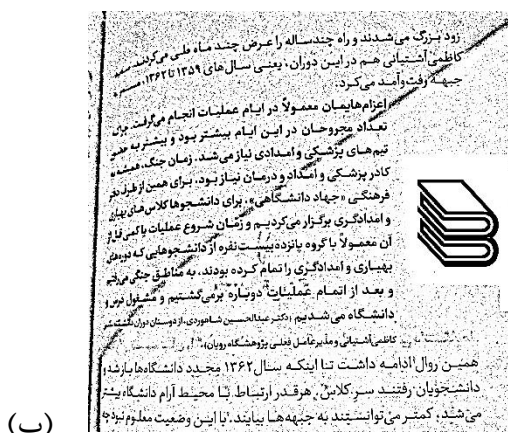 زود بزرگ می‌شدند و راه چندساله را عرض چند ماه طی می‌کردند.
کاظمی‌آشتیانی هم در این دوران، یعنی سال‌های ۱۳۵۹ تا ۱۳۶۲،
جبهه رفت‌وآمد می‌کرد.
اعزام‌هایمان معمولاً در ایام عملیات انجام می‌گرفت.
تعداد مجروحان در این ایام بیشتر بود و بیشتر به
تیم‌های پزشکی و امدادی نیاز می‌شد. زمان جنگ،
کادر پزشکی و امداد و درمان نیاز بود. برای همین از طرف
فرهنگی «جهاد دانشگاهی»، برای دانشجوها کلاس‌های
و امدادگری برگزار می‌کردیم و زمان شروع عملیات یا کمی قبل از
آن معمولاً با گروه پانزده بیست نفره از دانشجوهایی که
بهیاری و امدادگری را تمام کرده بودند، به مناطق جنگی
و بعد از اتمام عملیات دوباره برمی‌گشتیم و مشغول درس و
دانشگاه می‌شدیم (دکتر عبدالحسین شاهوردی، از دوستان دوران
کاظمی‌آشتیانی و مدیرعامل فعلی پژوهشگاه رویان).
همین روال ادامه داشت تا اینکه سال ۱۳۶۲ مجدد دانشگاه‌ها باز شد و
دانشجویان رفتند سر کلاس. هرقدر ارتباط با محیط آرام دانشگاه بیشتر
می‌شد، کمتر می‌توانستند به جبهه‌ها بیایند. با این وضعیت معلوم نبود چه
(ب)